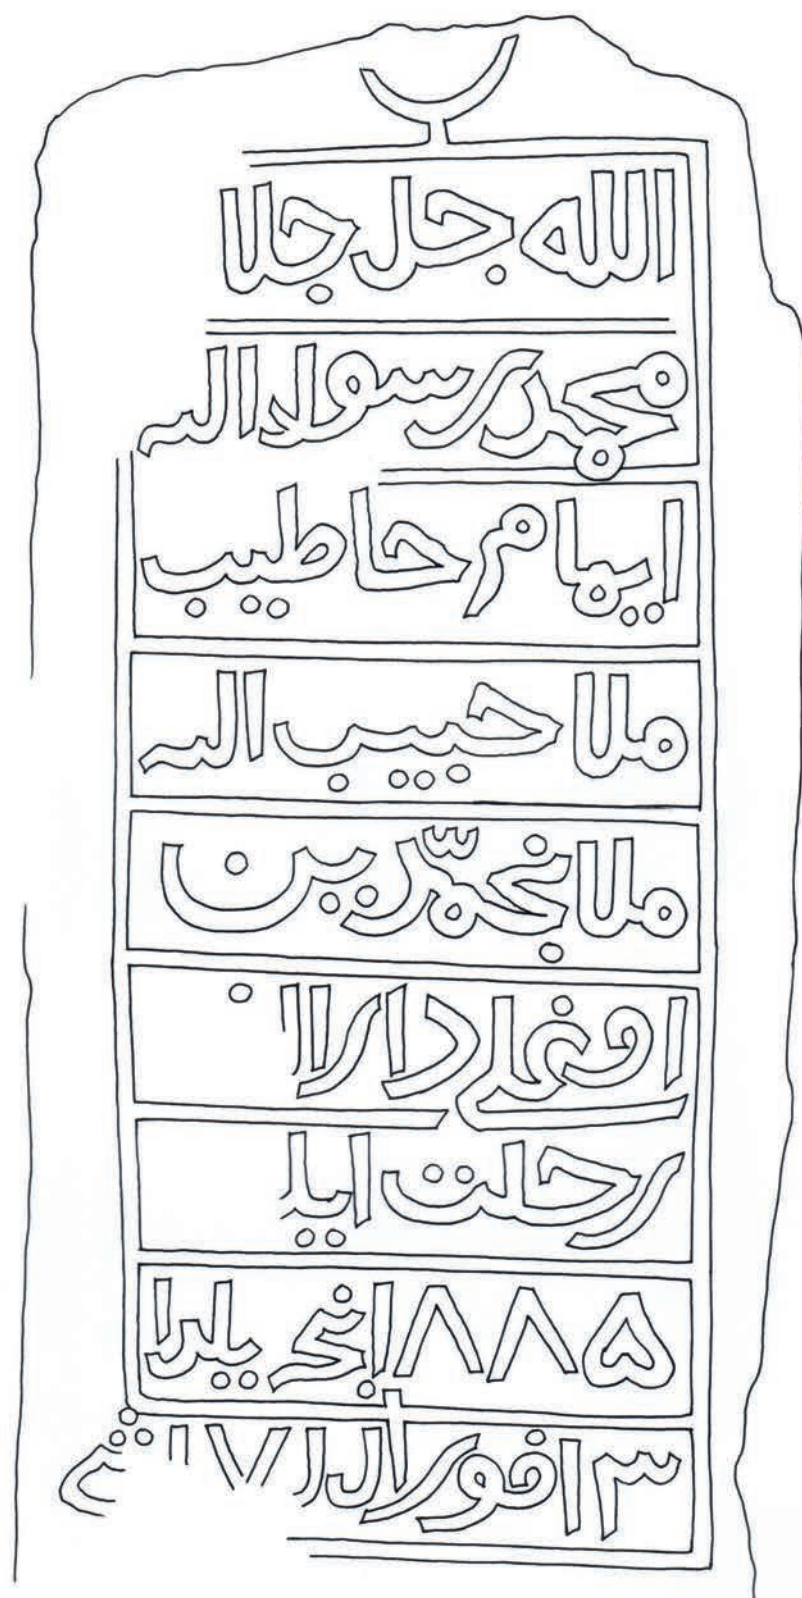 الله جل جلا
محمد رسولا الله
ايمام حاطيب
ملا حبيب الله
ملا نجمّدين
اوغلي دارالا
رحلت ايلا
١٨٨۵ نجي يلدا
١٣ فورالدا ١٧